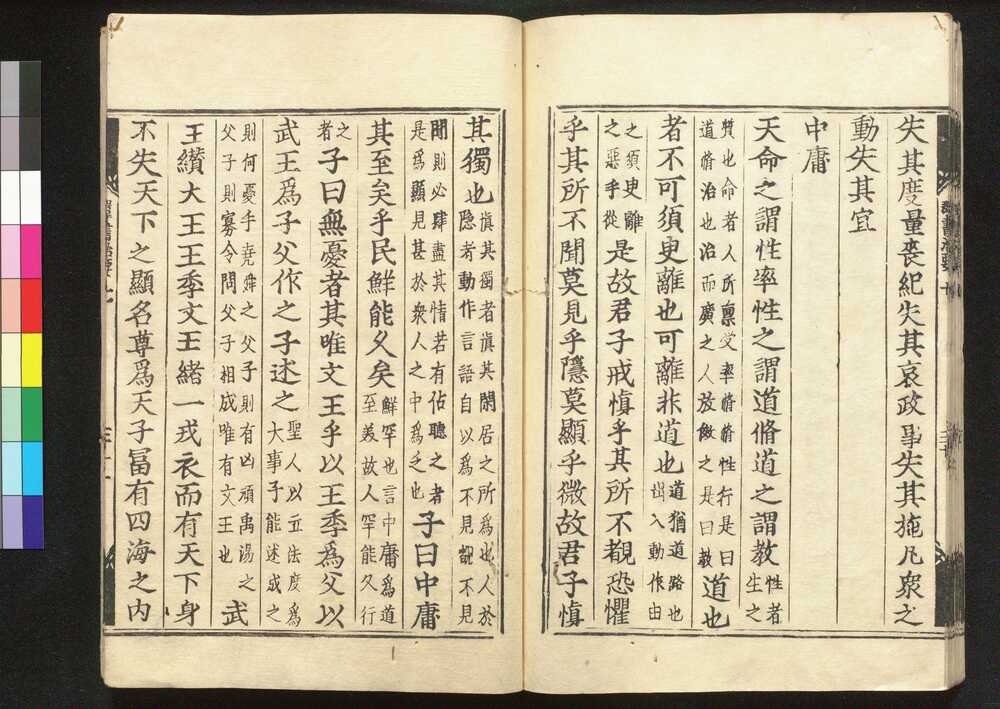 失其度量喪紀失其哀政事失其施凡衆之
動失其宜
中庸
天命之謂性率性之謂道脩道之謂教性者生之
賛也命者人所稟受率脩脩性行是曰道脩治也治而廣之人放傚之是曰教道也
者不可須臾離也可離非道也道猶道路也出入動作由
之須臾離之惡乎從是故君子戒慎乎其所不覩恐懼
乎其所不聞莫見乎隱莫顯乎微故君子慎
其獨也慎其獨者慎其閑居之所爲也人於隐者動作言語自以爲不見覩不見
聞則必肆盡其情若有佔聽之者是爲顯見甚於衆人之中爲之也子曰中庸
其至矣乎民鮮能久矣鮮罕也言中庸爲道至美故人罕能久行
之者子曰無憂者其唯文王乎以王季爲父以
武王爲子父作之子述之聖人以立法度爲大事子能述成之
則何憂乎堯舜之父子則有凶頑禹湯之父子則寡令聞父子相成唯有文王也武
王纉大王王季文王緒一戎衣而有天下身
不失天下之顯名尊爲天子冨有四海之内
群書治要 七